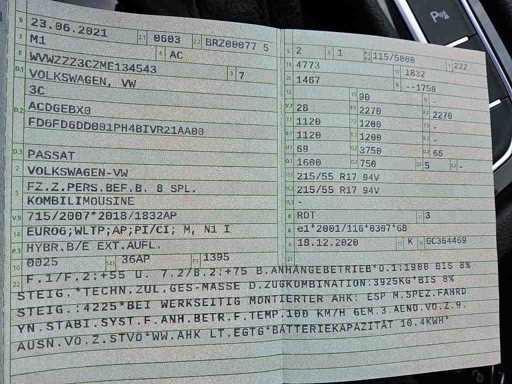 B 23.06.2021 2.1 0603 2.2 BRZ00077 5
J M1 4 AC
E WVWZZZ3CZME134543 3 7
D.1 VOLKSWAGEN, VW
3C
D.2 ACDGEBX0
FD6FD6DD001PH4BIVR21AA00
D.3 PASSAT
2 VOLKSWAGEN-VW
5 FZ.Z.PERS.BEF.B. 8 SPL.
KOMBILIMOUSINE
V.9 715/2007*2018/1832AP
14 EURO6;WLTP;AP;PI/CI; M, N1 I
P.3 HYBR.B/E EXT.AUFL.
10 0025 14.1 36AP P.1 1395
L 2 1 115/5000 222
18 4773 19 1832
20 1467 --1750
90 -
28 2270 2270
1120 1200 -
1120 1200 -
69 3750 66
O.1 1600 O.2 750 5 -
215/55 R17 94V
215/55 R17 94V
-
R ROT 3
K e1*2001/116*0307*68
6 18.12.2020 17 K 16 GC364469
22 F.1/F.2:+55 U. 7.2/8.2:+75 B.ANHÄNGEBETRIEB*O.1:1900 BIS 8%
STEIG.*TECHN.ZUL.GES-MASSE D.ZUGKOMBINATION:3925KG*BIS 8%
STEIG.:4225*BEI WERKSEITIG MONTIERTER AHK: ESP M.SPEZ.FAHRD
YN.STABI.SYST.F.ANH.BETR.F.TEMP.100 KM/H GEM.3.AEND.VO.Z.9.
AUSN.VO.Z.STVO*WW.AHK LT.EGTG*BATTERIEKAPAZITÄT 10.4KWH*